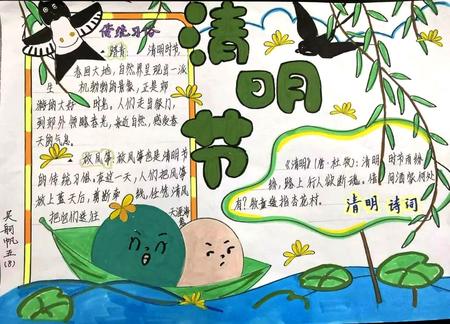 传统习俗
踏青：清明时节，
春回大地，自然界呈现出一派
生机勃勃的景象，正是郊
游的大好时光，人们走出家门，
到郊外领略春光，亲近自然，感受春
天的气息。
放风筝：放风筝也是清明节
的传统习俗，在这一天，人们把风筝
放上蓝天后，剪断牵线，任凭清风
把它们送往天涯海
清明节
《清明》（唐·杜牧）：清明时节雨纷
纷，路上行人欲断魂。借问酒家何处
有？牧童遥指杏花村。
清明诗词
五（8）